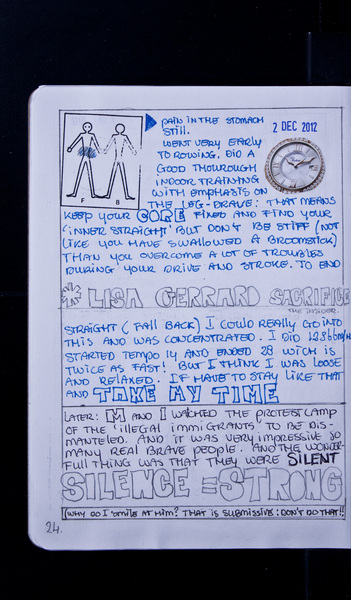 PAIN IN THE STOMACH
STILL.
2 DEC 2012
WENT VERY EARLY
TO ROWING. DID A
GOOD THOUROUGH
INDOOR TRAINING
WITH EMPHASIS ON
THE LEG-DRAVE: THAT MEANS
KEEP YOUR CORE FIXED AND FIND YOUR
'INNER STRAIGHT' BUT DON'T BE STIFF (NOT
LIKE YOU HAVE SWALLOWED A BROOMSTICK)
THAN YOU OVERCOME A LOT OF TROUBLES
DURING YOUR DRIVE AND STROKE. TO END
F B
LISA GERRARD SACRIFICE
THE INSIDER.
STRAIGHT (FALL BACK) I COULD REALLY GO INTO
THIS AND WAS CONCENTRATED. I DID
STARTED TEMPO 14 AND ENDED 28 WICH IS
TWICE AS FAST! BUT I THINK I WAS LOOSE
AND RELAXED. IF HAVE TO STAY LIKE THAT
AND TAKE MY TIME
LATER: M AND I WATCHED THE PROTESTCAMP
OF THE 'ILLEGAL IMMIGRANTS' TO BE DIS-
MANTELED. AND IT WAS VERY IMPRESSIVE SO
MANY REAL BRAVE PEOPLE. AND THE WONDER-
FULL THING WAS THAT THEY WERE SILENT
SILENCE = STRONG
(WHY DO I SMILE AT HIM? THAT IS SUBMISSIVE: DON'T DO THAT!!
24.